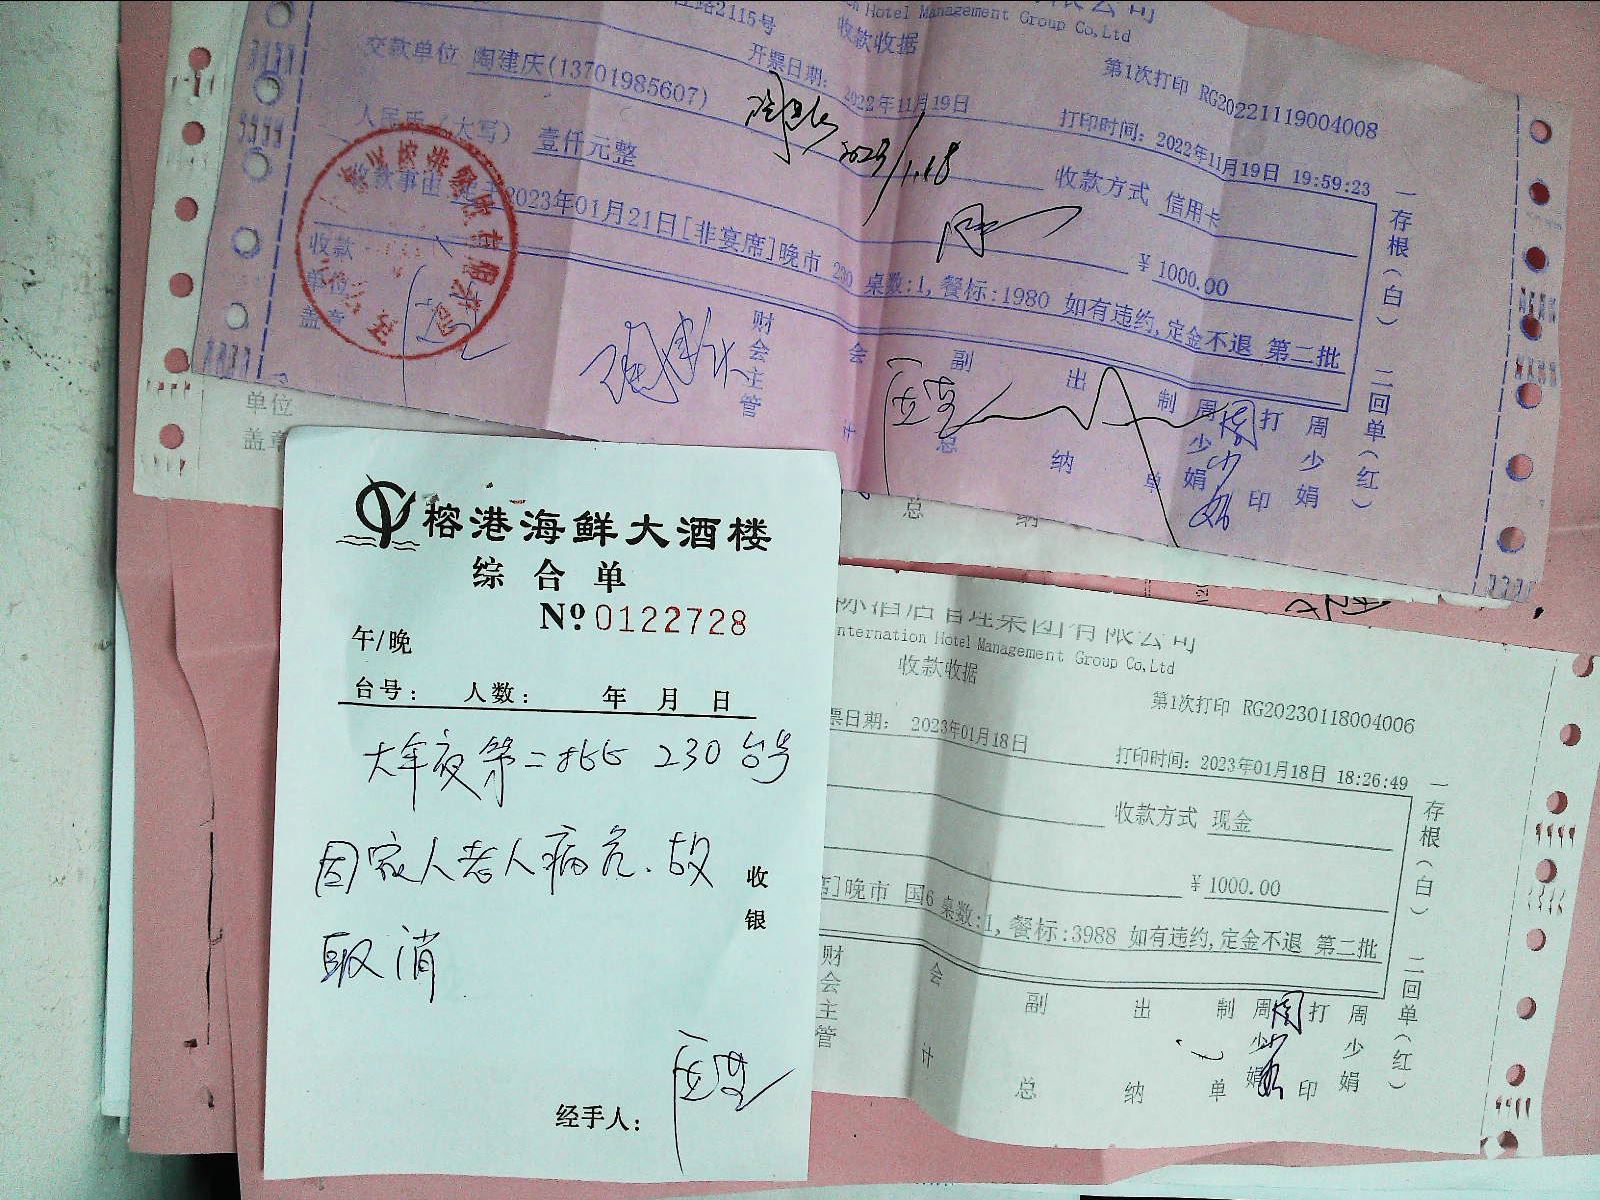 江路2115号
Hotel Management Group Co,Ltd
收款收据
第1次打印 RG20221119004008
开票日期: 2022年11月19日
打印时间: 2022年11月19日 19:59:23
交款单位 陶建庆(13701985607)
2023/1.18
人民币（大写） 壹仟元整
收款方式 信用卡
¥ 1000.00
收款事由
2023年01月21日[非宴席]晚市 230 桌数:1, 餐标:1980 如有违约,定金不退 第二批
收款
单位
盖章
财会主管
会计
副总
出纳
制单
周少娟
打印
周少娟
一存根(白) 二回单(红)
单位
盖章
总
纳
榕港海鲜大酒楼
综合单
№ 0122728
午/晚
台号: 人数: 年 月 日
大年夜第二批 230 台号
因家人老人病危.故
取消
收银
经手人:
际酒店管理集团有限公司
nternation Hotel Management Group Co,Ltd
收款收据
第1次打印 RG20230118004006
票日期: 2023年01月18日
打印时间: 2023年01月18日 18:26:49
收款方式 现金
¥ 1000.00
席]晚市 国6 桌数:1, 餐标:3988 如有违约,定金不退 第二批
财会主管
会计
副总
出纳
制单
周少娟
打印
周少娟
一存根(白) 二回单(红)